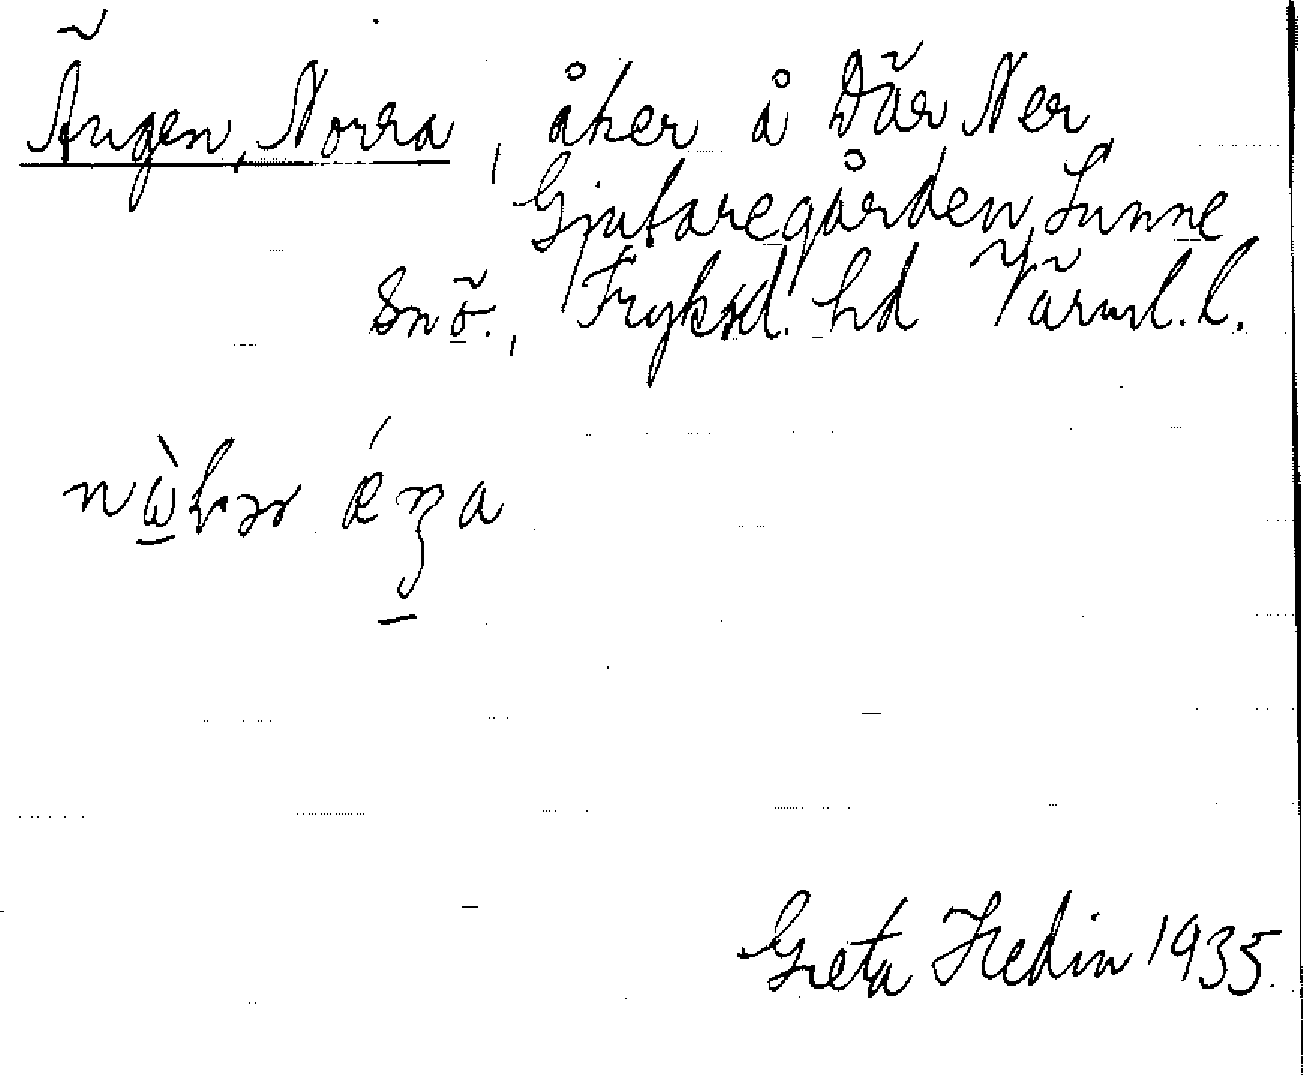 Ängen, Norra, åker å Där Ner
Gjutaregården, Sunne
snö., Fryksd. hd Värml. l.
Greta Hedin 1935.